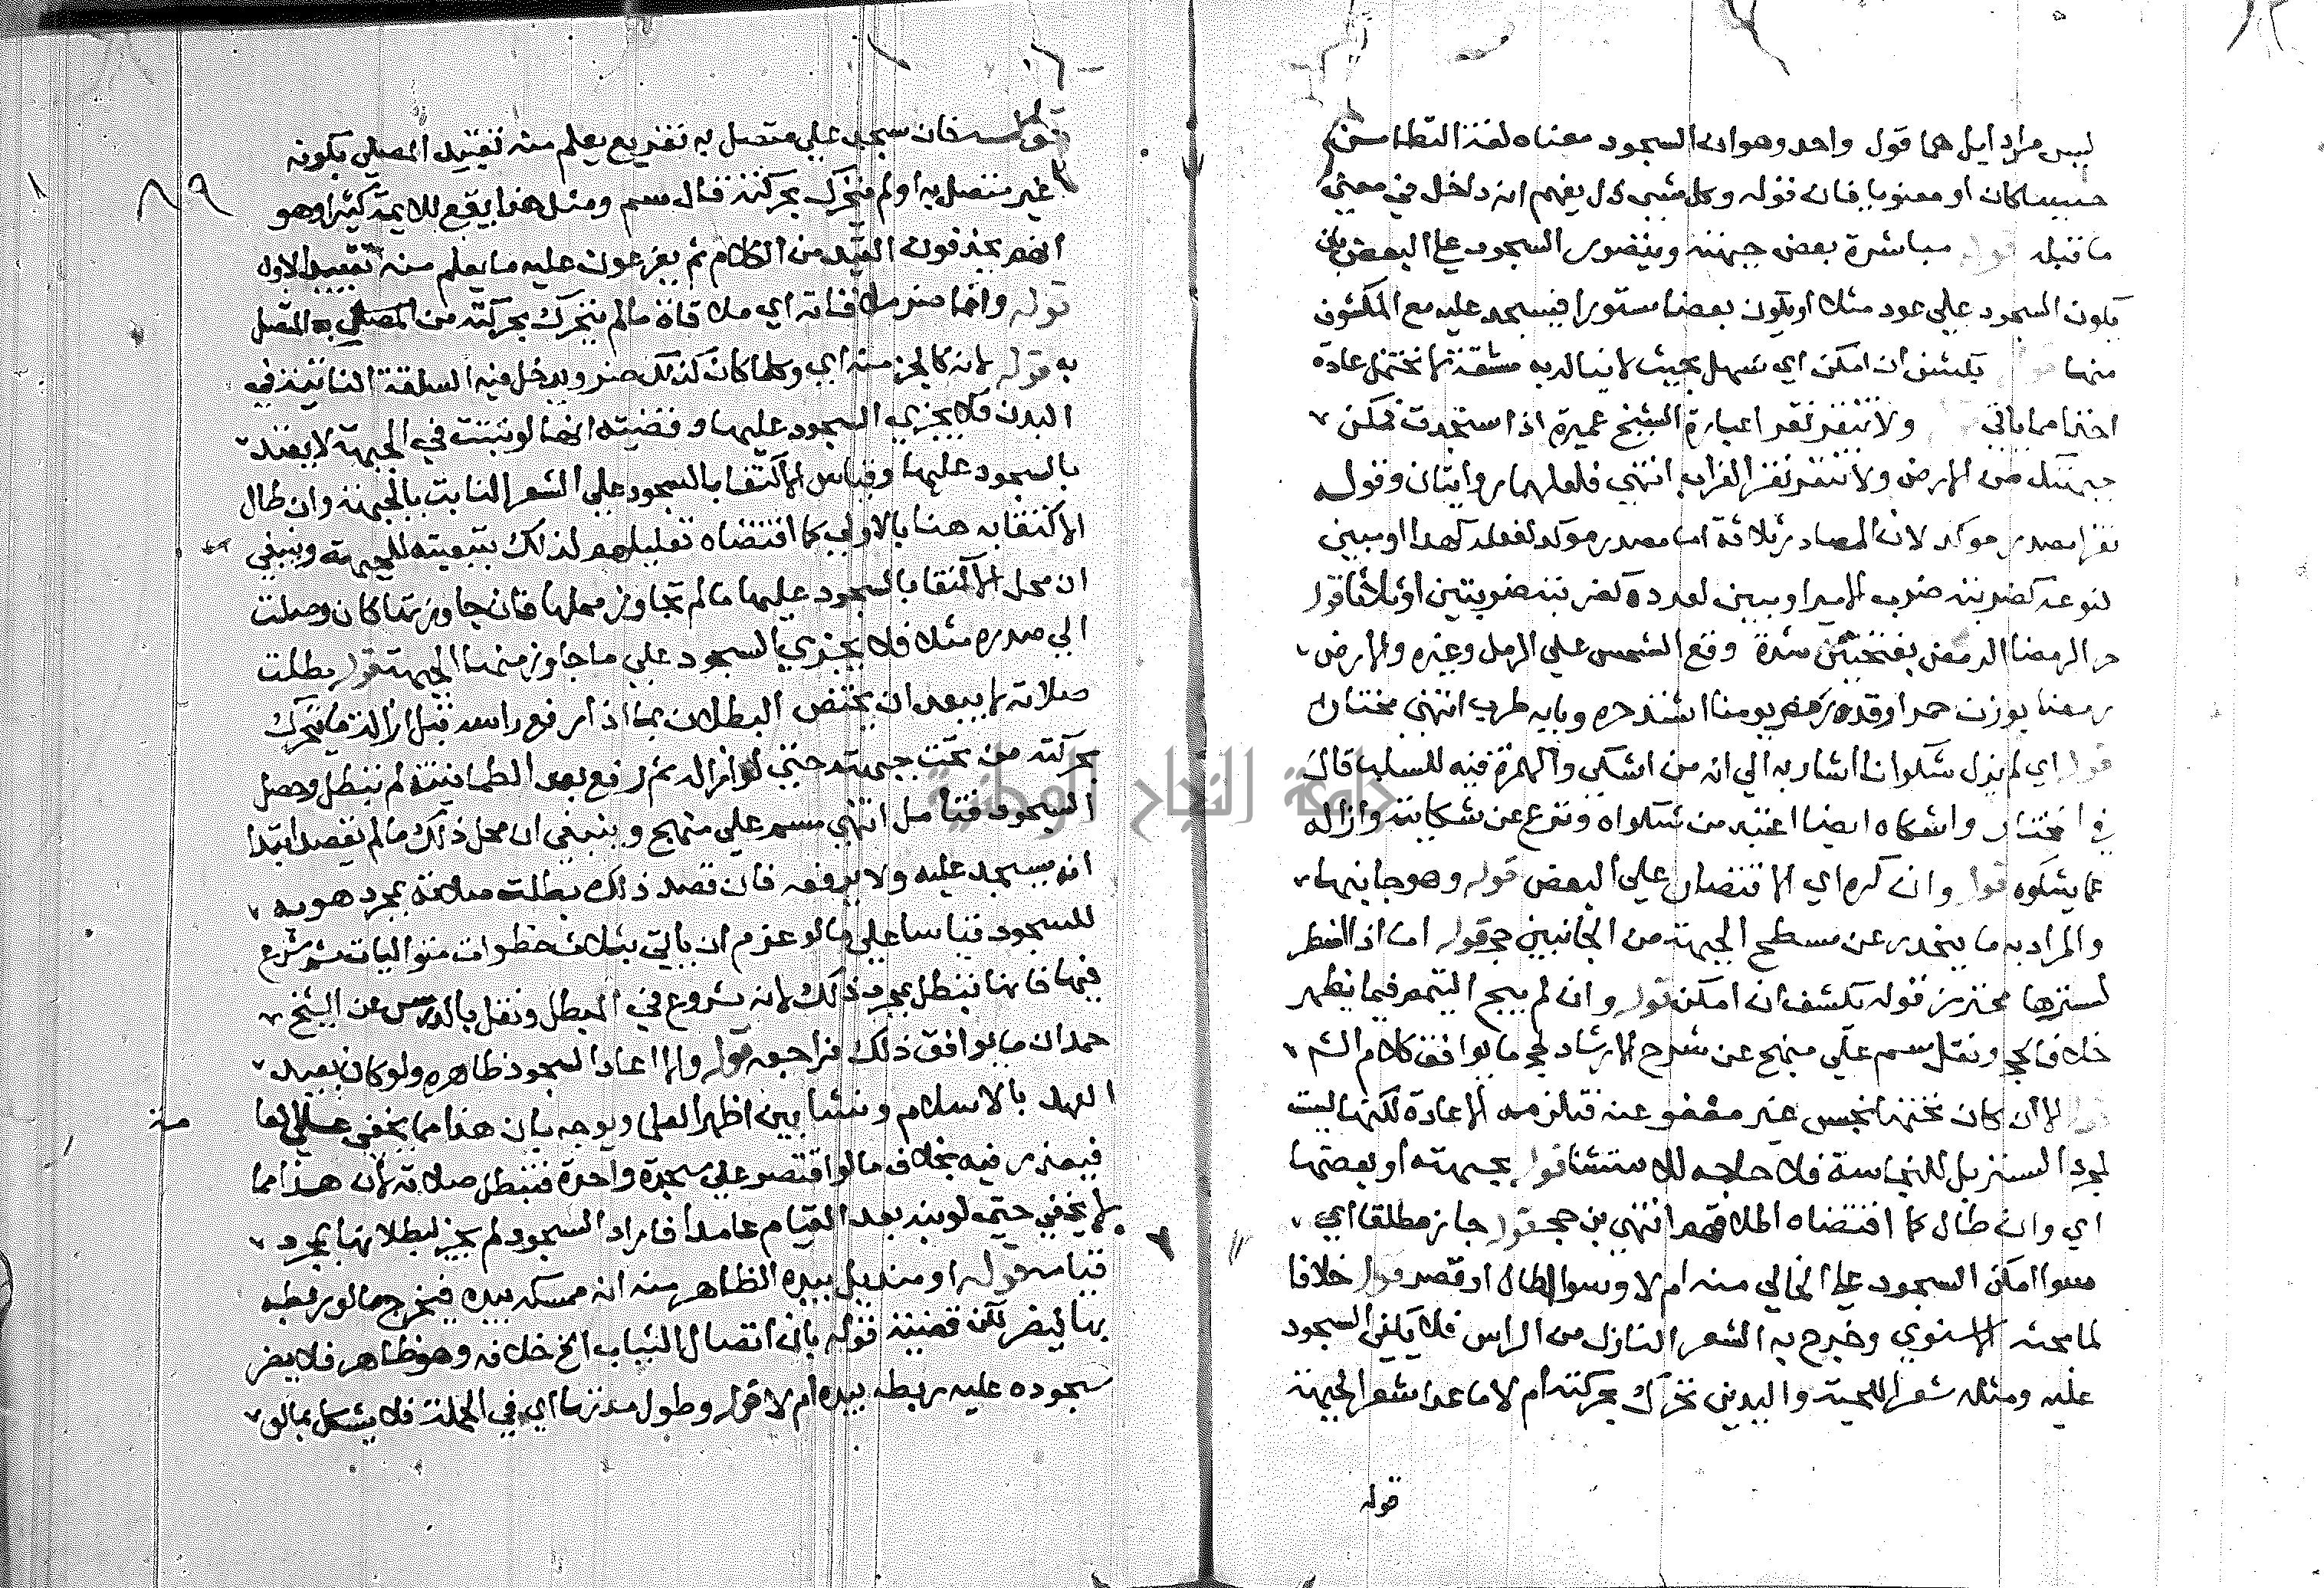 ليس مرادا بل هما قول واحد وهو ان السجود معناه لغة التطامن
حسيا كان او معنويا فان قوله وكل شيء ذل يفهم انه داخل في معنى
ما قبله قوله مباشرة بعض جبهته ويتصور السجود على البعض بان
يكون السجود على عود مثلا او يكون بعضها مستورا فيسجد عليه مع المكشوف
منها قوله بكشف ان امكن اي سهل بحيث لا يناله به مشقة لا تحتمل عادة
اخذا مما ياتي ولا تنقر نقرا عبارة الشيخ عميرة اذا سجدت فمكن
جبهتك من الارض ولا تنقر نقر الغراب انتهى فلعلهما روايتان وقوله
نقرا مصدر موكد لان المصادر ثلاثة اما مصدر موكد لفعله كهذا او مبين
لنوعه كضربته ضرب الامير او مبين لعدده كضربته ضربتين او ثلاثا قوله
حر الرمضا الرمض بفتحتين شدة وقع الشمس على الرمل وغيره والارض
رمضا بوزن حمرا وقد رمض يومنا اشتد حره وبابه طرب انتهى مختار
قوله اي لم يزل شكوانا اشار به الى انه من اشكى والهمزة فيه للسلب قال
في المختار واشكاه ايضا اعتبه من شكواه ونزع عن شكايته وازاله
عما يشكوه قوله وان كره اي الاقتصار على البعض قوله وهو جانبها
والمراد به ما ينحدر عن مسطح الجبهة من الجانبين حج قوله اما اذا اضطر
لسترها محترز قوله بكشف ان امكن قوله وان لم يبح التيمم فيما يظهر
خلافا لحج ونقل سم على منهج عن شرح الارشاد لحج ما يوافق كلام الشم
قوله الا ان كان تحتها نجس غير معفو عنه فتلزمه الاعادة لكنها ليست
لمجرد الستر بل للنجاسة فلا حاجه للاستثنا قوله بجبهته او بعضها
اي وان طال كما اقتضاه اطلاقهم انتهى بن حجر قوله جاز مطلقا اي
سوا امكن السجود على الخالي منه ام لا وسوا طال او قصر قوله خلافا
لما بحثه الاسنوي وخرج به الشعر النازل من الراس فلا يكفي السجود
عليه ومثله شعر اللحية واليدين تحرك بحركته ام لا ما عدا شعر الجبهة
قوله
٨٩
قوله فان سجد على متصل به تفريع يعلم منه تقييد المصلى بكونه
غير متصل به او لم يتحرك بحركته قال سم ومثل هذا يقع للائمة كثيرا وهو
انهم يحذفون القيد من الكلام ثم يفرعون عليه ما يعلم منه تقييد الاول
قوله وانما ضر ملاقاته اي ملاقاة ما لم يتحرك بحركته من المصلي به المتصل
به قوله لانه كالجزء منه اي وكلما كان كذلك ضر ويدخل فيه السلعة النابتة في
البدن فلا يجزي السجود عليها وقضيته انها لو نبتت في الجبهة لا يعتد
بالسجود عليها وقياس الاكتفا بالسجود على الشعر النابت بالجبهة وان طال
الاكتفا به هنا بالاولى كما اقتضاه تعليلهم لذلك بتبعيته للجبهة وينبغي
ان محل الاكتفا بالسجود عليها ما لم تجاوز محلها فان جاوزته كان وصلت
الى صدره مثلا فلا يجزي السجود على ما جاوز منها الجبهة قوله بطلت
صلاته لا يبعد ان يختص البطلان بما اذا رفع راسه قبل ازالة ما يتحرك
بحركته من تحت جبهته حتى لو ازاله ثم رفع بعد الطمانينة لم تبطل وحصل
السجود فتامل انتهى سم على منهج وينبغي ان محل ذلك ما لم يقصد ابتدا
انه يسجد عليه ولا يرفعه فان قصد ذلك بطلت صلاته بمجرد هويه
للسجود قياسا على ما لو عزم ان ياتي بثلاث خطوات متواليات ثم شرع
فيها فانها تبطل بمجرد ذلك لانه شروع في المبطل ونقل بالدرس عن الشيخ
حمدان ما يوافق ذلك فراجعه قوله والا اعاد السجود ظاهره ولو كان بعيد
العهد بالاسلام ونشا بين اظهر العلما ويوجه بان هذا مما يخفى على العا
مة
فيعذر فيه بخلاف ما لو اقتصر على سجدة واحدة فتبطل صلاته لان هذا مما
لا يخفى حتى لو بنه بعد القيام عامدا فاراد السجود لم يجز لبطلانها بمجرد
قيامه قوله او منديل بيده الظاهر منه انه ممسكه بيده فيخرج ما لو ربطه
بها ليضر لكن قضية قوله بان اتصال الثياب الخ خلافه وهو ظاهر فلا يضر
سجوده عليه ربطه بيده ام لا قوله وطول مدتها اي في الجملة فلا يشكل بما لو